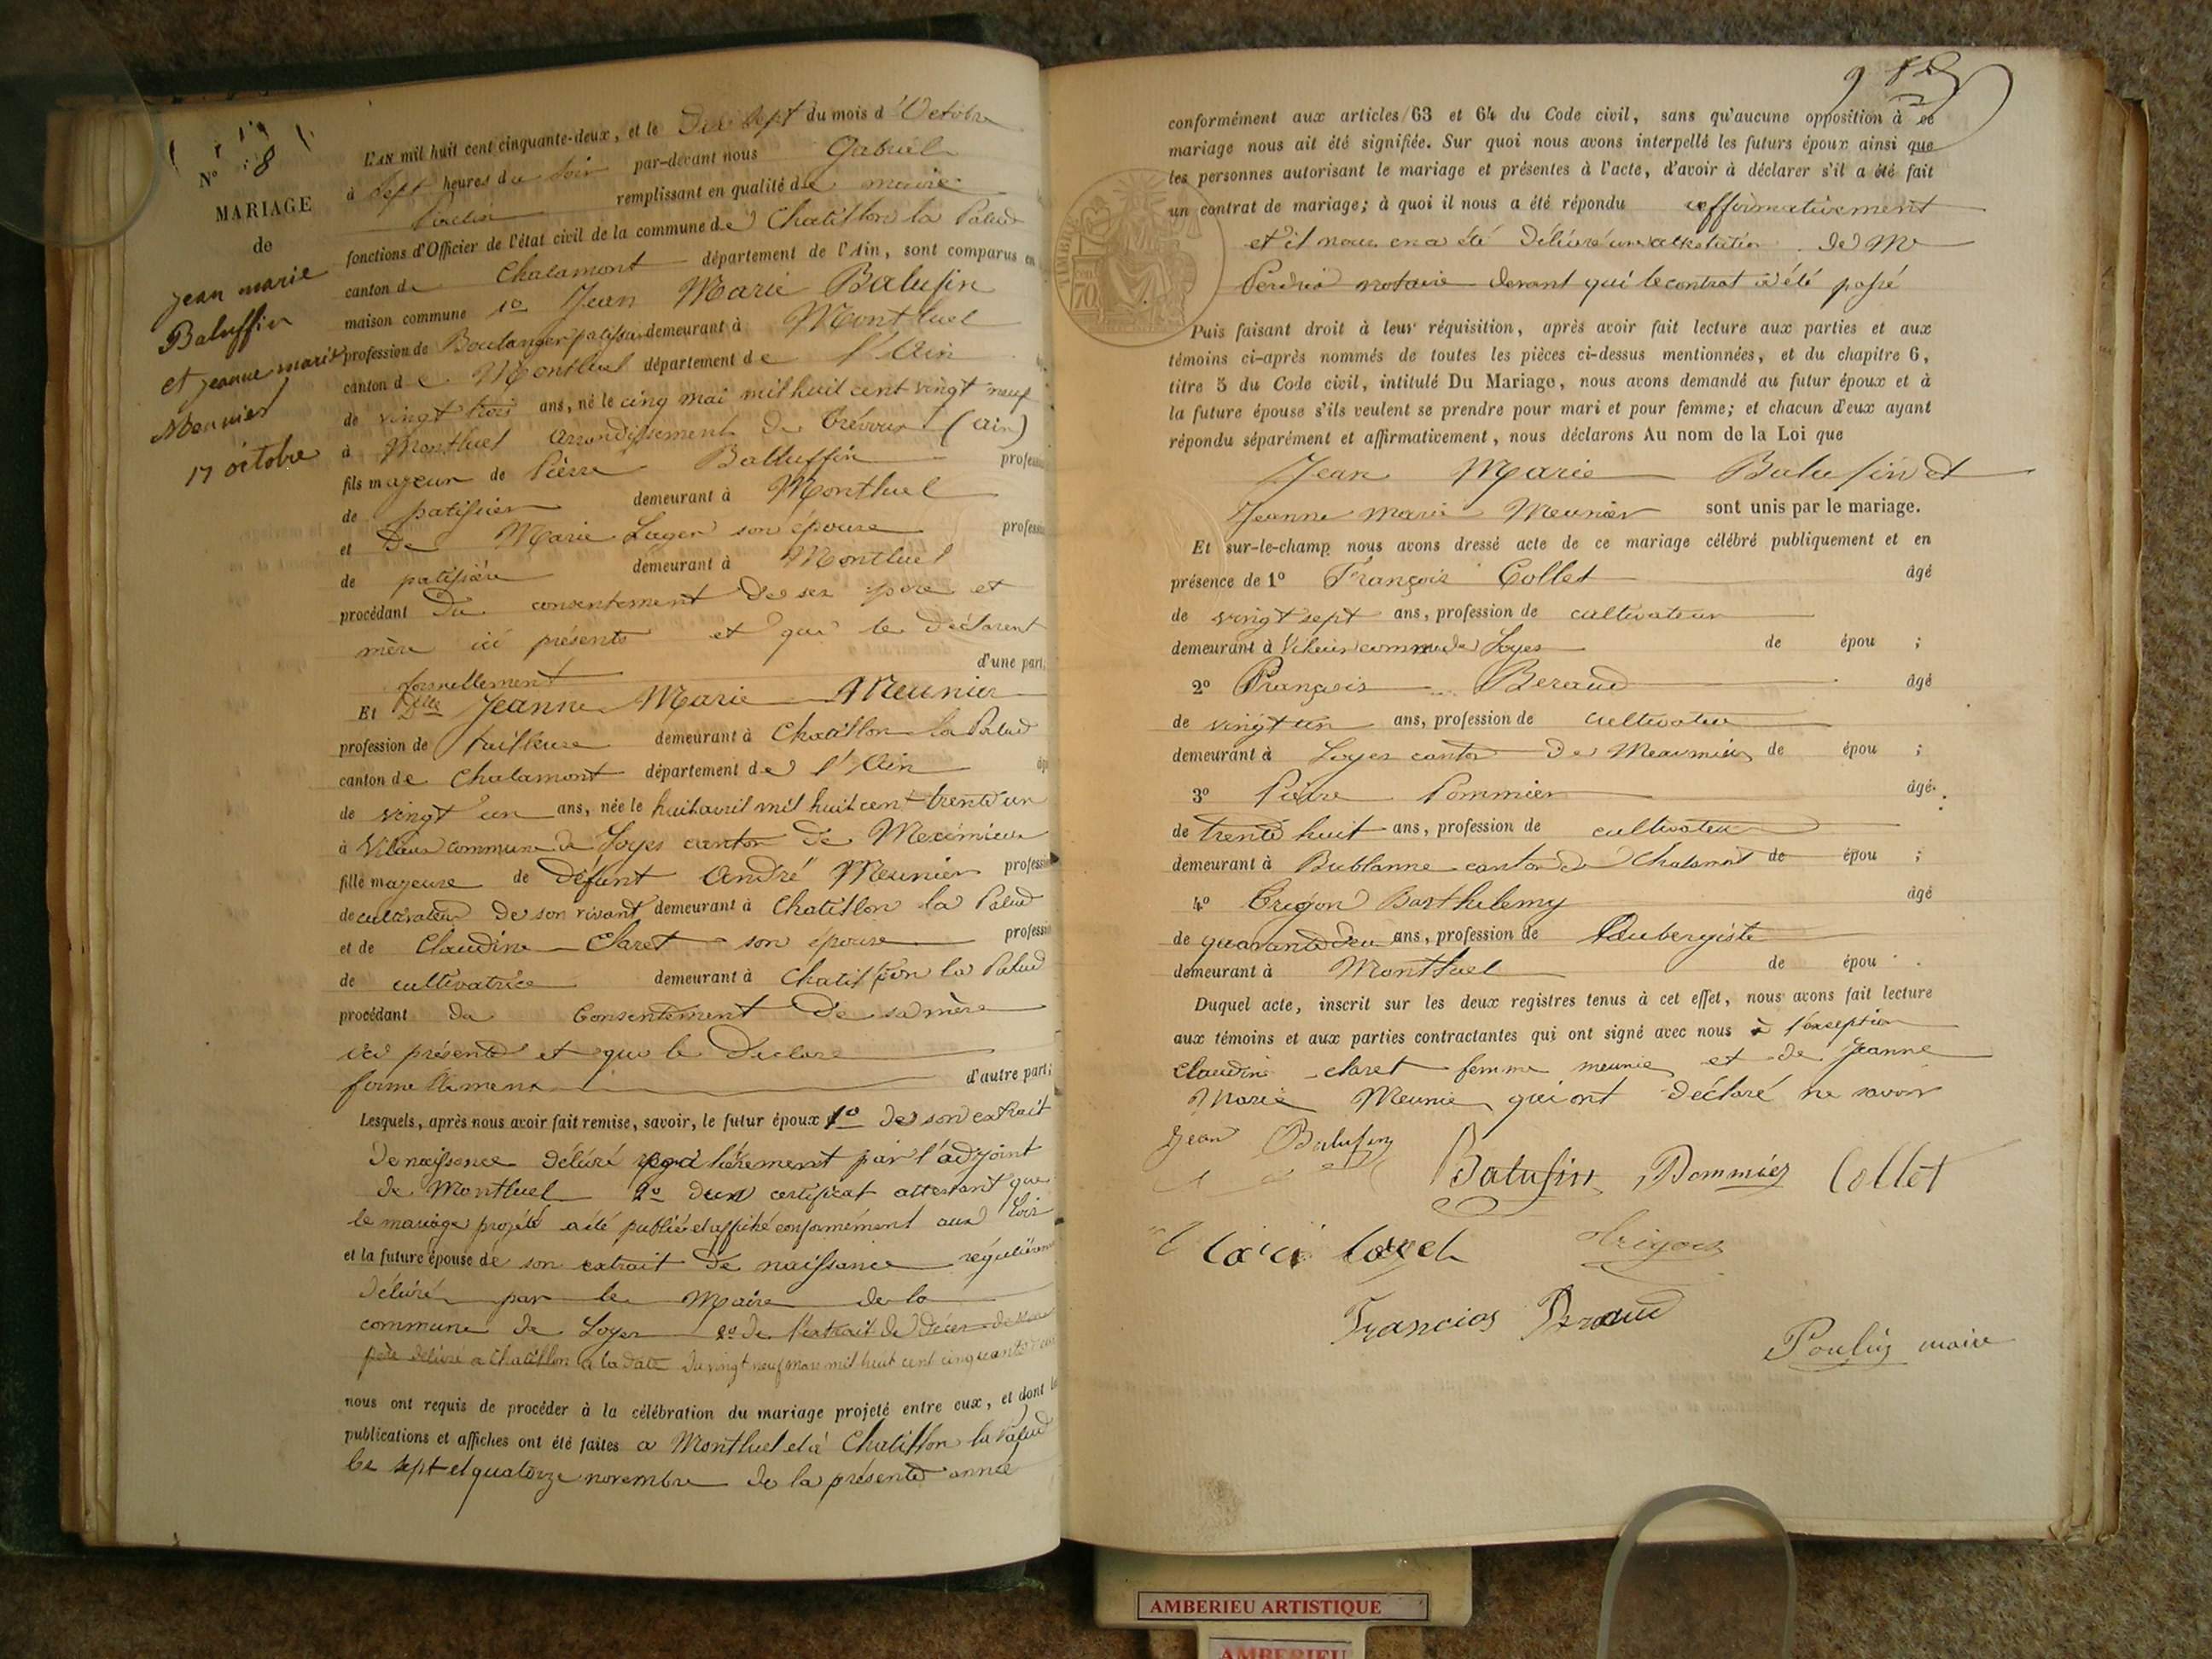 N° 8
MARIAGE
de
jean marie
Baluffin
et jeanne marie
Meunier
17 octobre
L'AN mil huit cent cinquante-deux, et le Dix Sept du mois d'Octobre
à Sept heures du Soir par-devant nous Gabriel
Poulin remplissant en qualité de maire
fonctions d'Officier de l'état civil de la commune de Chatillon la Palud
canton de Chalamont département de l'Ain, sont comparus en
maison commune 1° Jean Marie Balufin
profession de Boulanger patissier demeurant à Montluel
canton de Montluel département de l'Ain
de vingt trois ans, né le cinq mai mil huit cent vingt neuf
à Montluel arrondissement de Trévoux (ain)
fils majeur de Pierre Balluffin profess
de patissier demeurant à Montluel
et De Marie Luger son épouse profess
de patissière demeurant à Montluel
procédant Du consentement de ses père et
mère ici présents et qui le Déclarent
formellement d'une part;
Et Dlle Jeanne Marie Meunier
profession de tailleuse demeurant à Chatillon la Palud
canton de Chalamont département de l'Ain
de vingt un ans, née le huit avril mil huit cent trente un
à Vilieu commune de Loyes canton de Meximieux
fille majeure de Défunt André Meunier profess
de cultivateur De son vivant demeurant à Chatillon la Palud
et de Claudine Claret son épouse profess
de cultivatrice demeurant à Chatillon la Palud
procédant du Consentement De sa mère
ici présente et qui le Declare
formellement d'autre part;
Lesquels, après nous avoir fait remise, savoir, le futur époux 1° de son extrait
De naissance délivré régulièrement par l'adjoint
de Montluel 2° d'un certificat attestant que
le mariage projeté a été publié et affiché conformément aux lois
et la future épouse de son extrait De naissance régulièrem
Délivré par le Maire de la
commune de Loyes 2° De l'extrait de Décès de
père délivré a Chatillon a la date du vingt neuf mars mil huit cent cinquante
nous ont requis de procéder à la célébration du mariage projeté entre eux, et dont le
publications et affiches ont été faites a Montluel et à Chatillon la Palud
le sept et quatorze novembre de la présente année
98
conformément aux articles 63 et 64 du Code civil, sans qu'aucune opposition à ce
mariage nous ait été signifiée. Sur quoi nous avons interpellé les futurs époux ainsi que
les personnes autorisant le mariage et présentes à l'acte, d'avoir à déclarer s'il a été fait
un contrat de mariage; à quoi il nous a été répondu affirmativement
et il nous en a été Délivré une attestation de Me
Perdrix notaire devant qui le contrat a été passé
TIMBRE
70
Puis faisant droit à leur réquisition, après avoir fait lecture aux parties et aux
témoins ci-après nommés de toutes les pièces ci-dessus mentionnées, et du chapitre 6,
titre 5 du Code civil, intitulé Du Mariage, nous avons demandé au futur époux et à
la future épouse s'ils veulent se prendre pour mari et pour femme; et chacun d'eux ayant
répondu séparément et affirmativement, nous déclarons Au nom de la Loi que
Jean Marie Balufin et
Jeanne Marie Meunier sont unis par le mariage.
Et sur-le-champ nous avons dressé acte de ce mariage célébré publiquement et en
présence de 1° François Collet âgé
de vingt sept ans, profession de cultivateur
demeurant à Vilieu commune de Loyes de épou ;
2° François Beraud âgé
de vingt un ans, profession de cultivateur
demeurant à Loyes canton De Meximieux de épou ;
3° Pierre Pommier âgé
de trente huit ans, profession de cultivateur
demeurant à Bublanne canton de Chalamont de épou ;
4° Trigon Barthelemy âgé
de quarante deux ans, profession de Aubergiste
demeurant à Montluel de épou
Duquel acte, inscrit sur les deux registres tenus à cet effet, nous avons fait lecture
aux témoins et aux parties contractantes qui ont signé avec nous à l'exception
Claudine claret femme meunier et de Jeanne
Marie Meunier qui ont déclaré ne savoir
Jean Balufin
Balufin Pommier Collet
Trigon
François Beraud
Poulin maire
AMBERIEU ARTISTIQUE
AMBERIEU